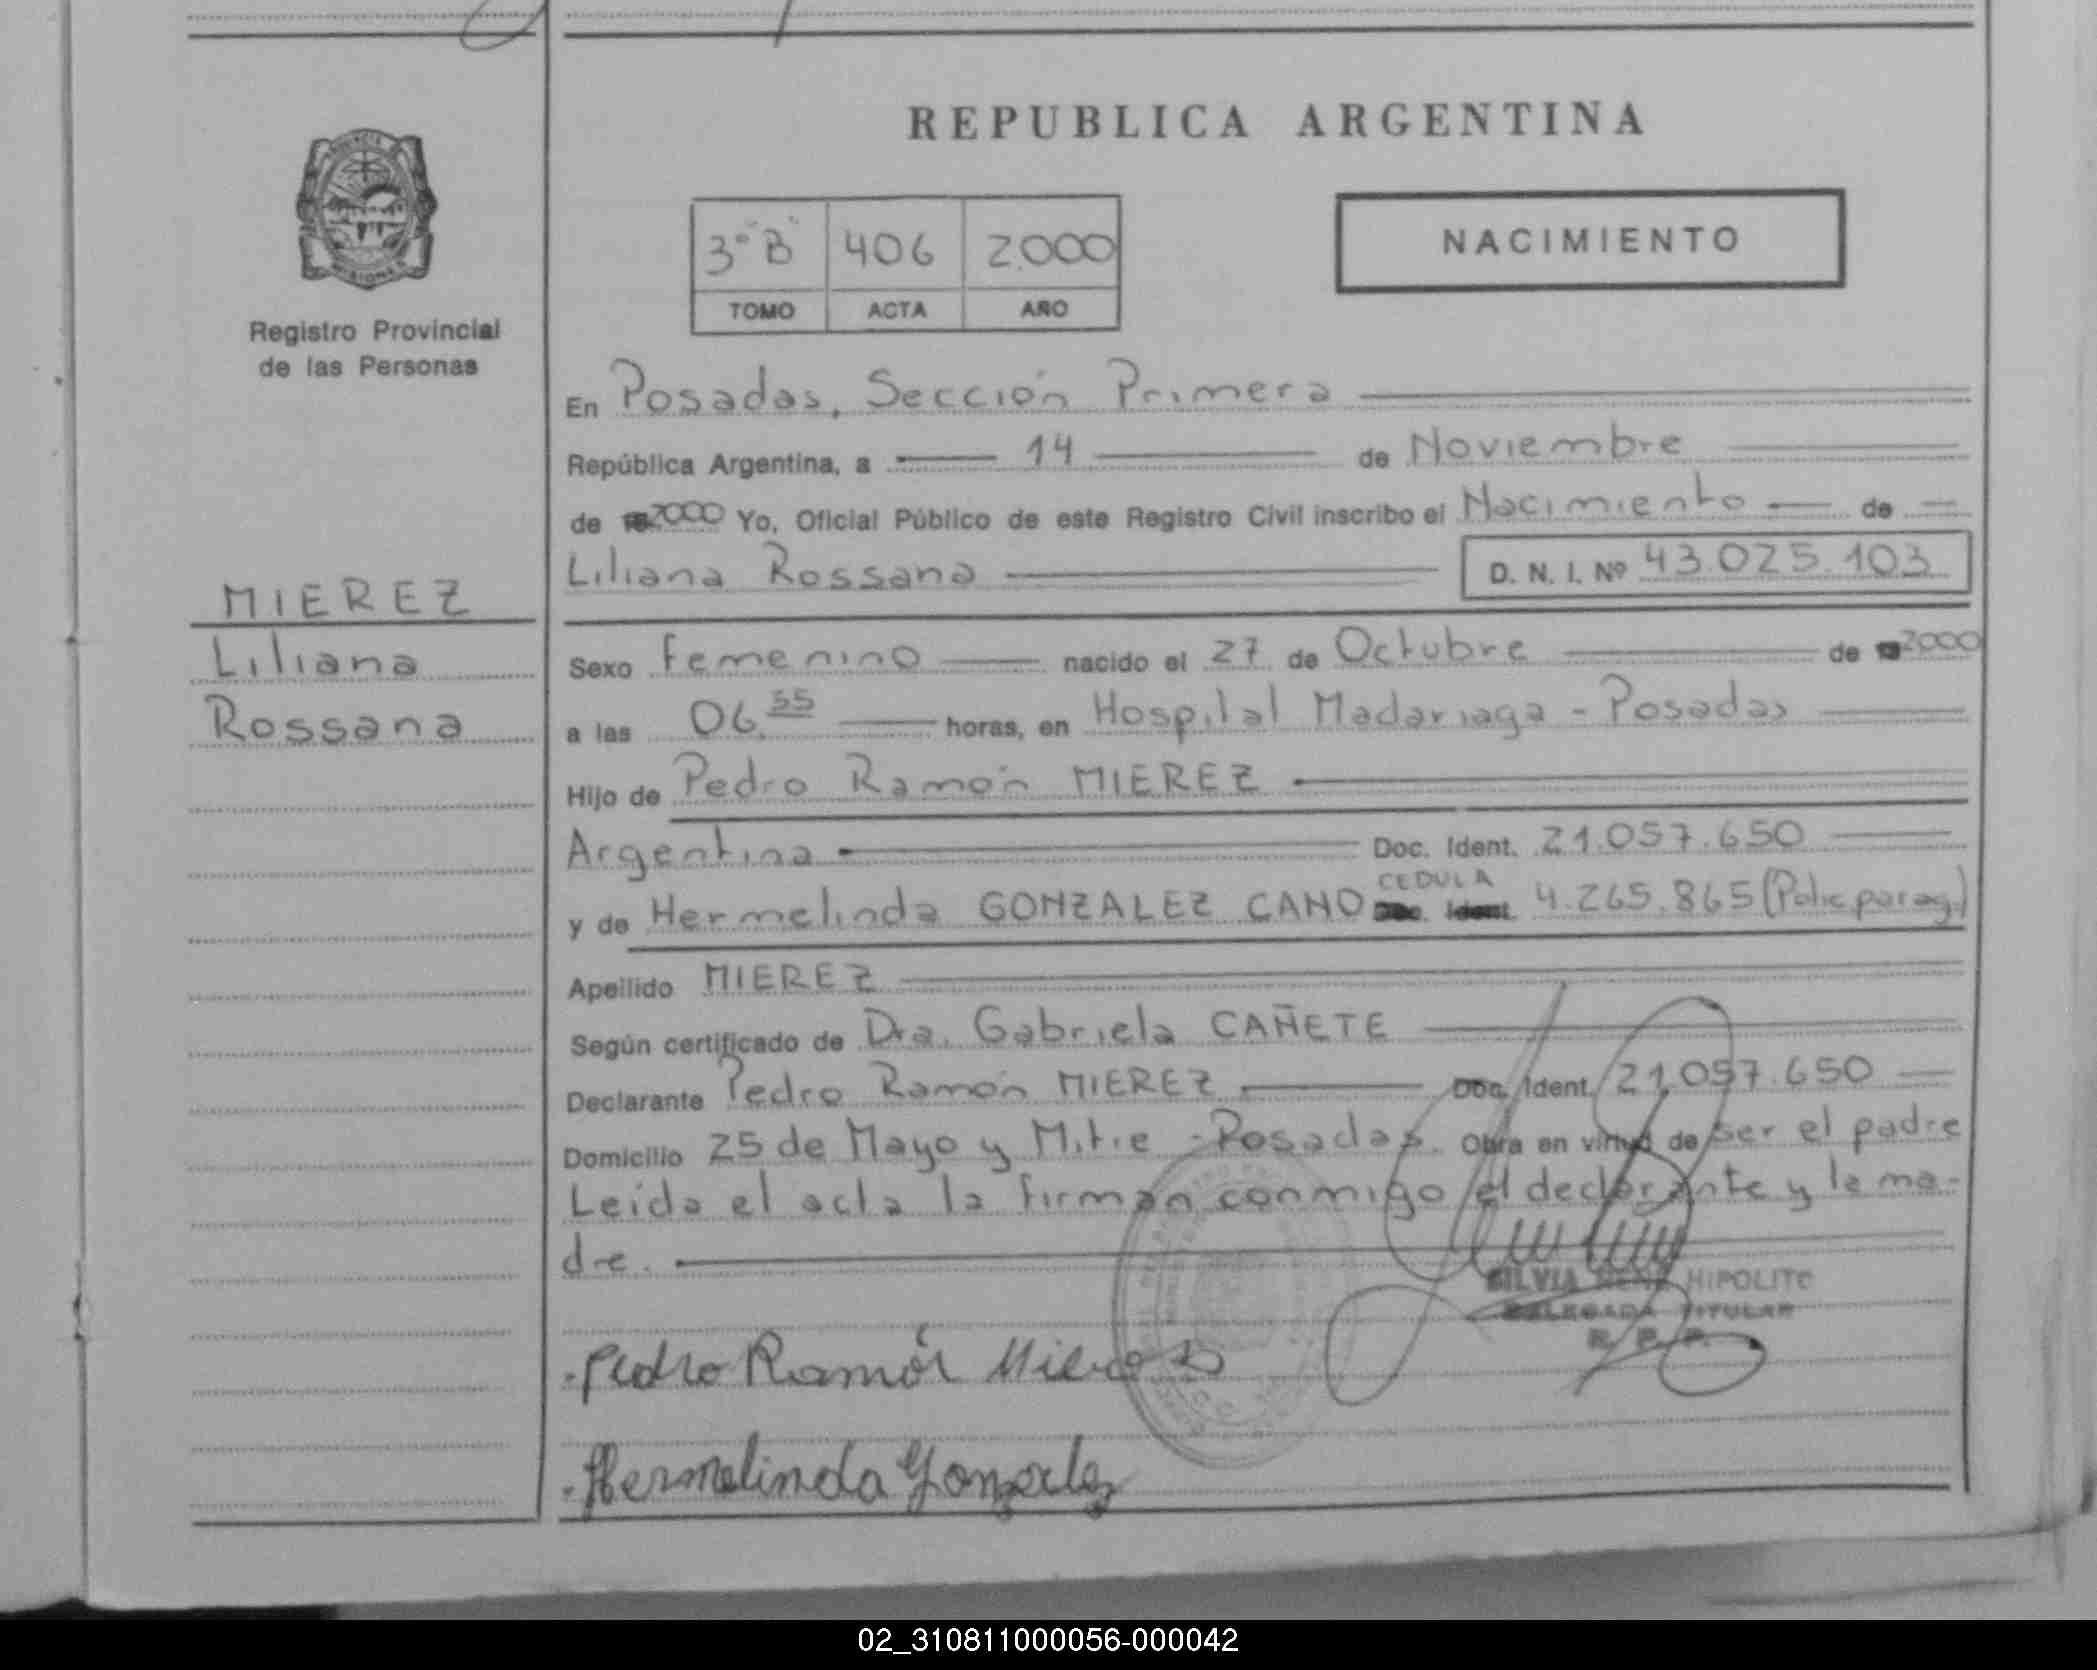 REPUBLICA ARGENTINA
3º "B" 406 2.000
TOMO ACTA AÑO
NACIMIENTO
Registro Provincial
de las Personas
MIEREZ
Liliana
Rossana
En Posadas, Sección Primera
República Argentina, a 14 de Noviembre
de 2000 Yo, Oficial Público de este Registro Civil inscribo el Nacimiento de
Liliana Rossana D. N. I. Nº 43.025.103
Sexo Femenino nacido el 27 de Octubre de 2000
a las 06 55 horas, en Hospital Madariaga - Posadas
Hijo de Pedro Ramón MIEREZ
Argentina Doc. Ident. 21.057.650
CEDULA
y de Hermelinda GONZALEZ CANO Doc. Ident. 4.265.865 (Polic parag.)
Apellido MIEREZ
Según certificado de Dra. Gabriela CAÑETE
Declarante Pedro Ramón MIEREZ Doc. Ident. 21.057.650
Domicilio 25 de Mayo y Mitre - Posadas. Obra en virtud de ser el padre
Leída el acta la firman conmigo el declarante y la ma-
dre.
SILVIA IRENE HIPOLITO
DELEGADA TITULAR
R. P. P.
Pedro Ramón Mierez
Hermelinda Gonzalez
02_310811000056-000042